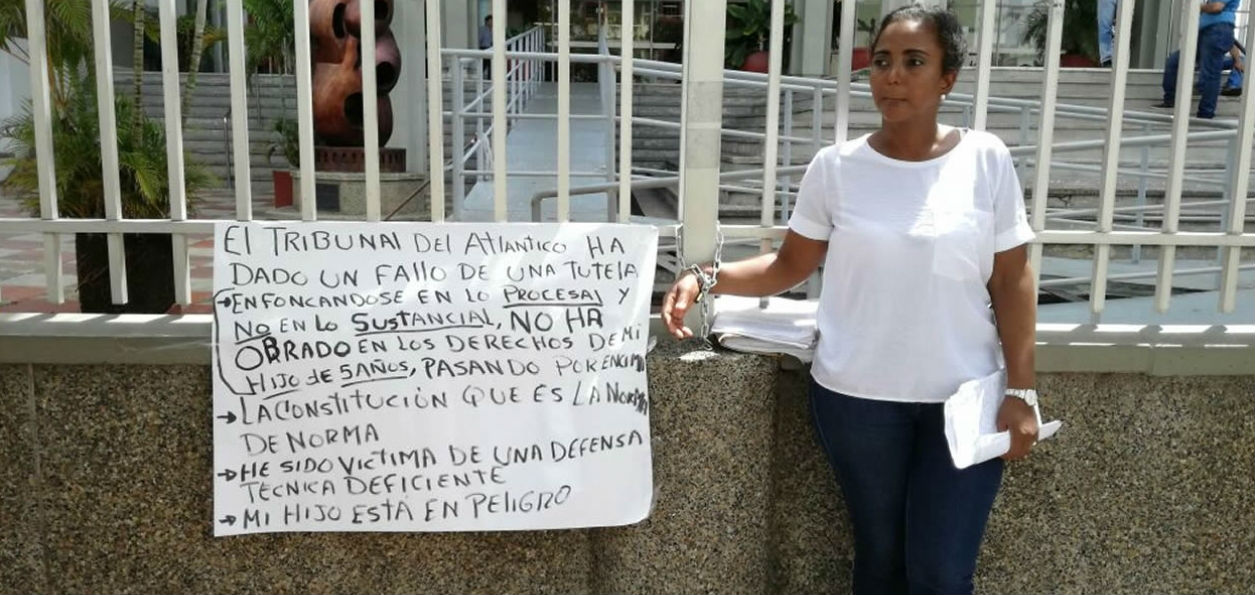 El TRIBUNAl DEl AtlANTICO HA
DADO UN FALLO DE UNA TUTElA
→ENFONCANDOSE EN LO PROCESAl Y
NO EN LO SUSTANCIAL, NO HA
OBRADO EN LOS DERECHOS DE Mi
HIJO dE 5AÑOS, PASANDO POR ENCIMA
→LA CONSTITUCIÓN QUE ES LA NORMA
DE NORMA
→HE SIDO VICTIMA DE UNA DEFENSA
TECNICA DEFICIENTE
→MI HIJO ESTÁ EN PElIGRO